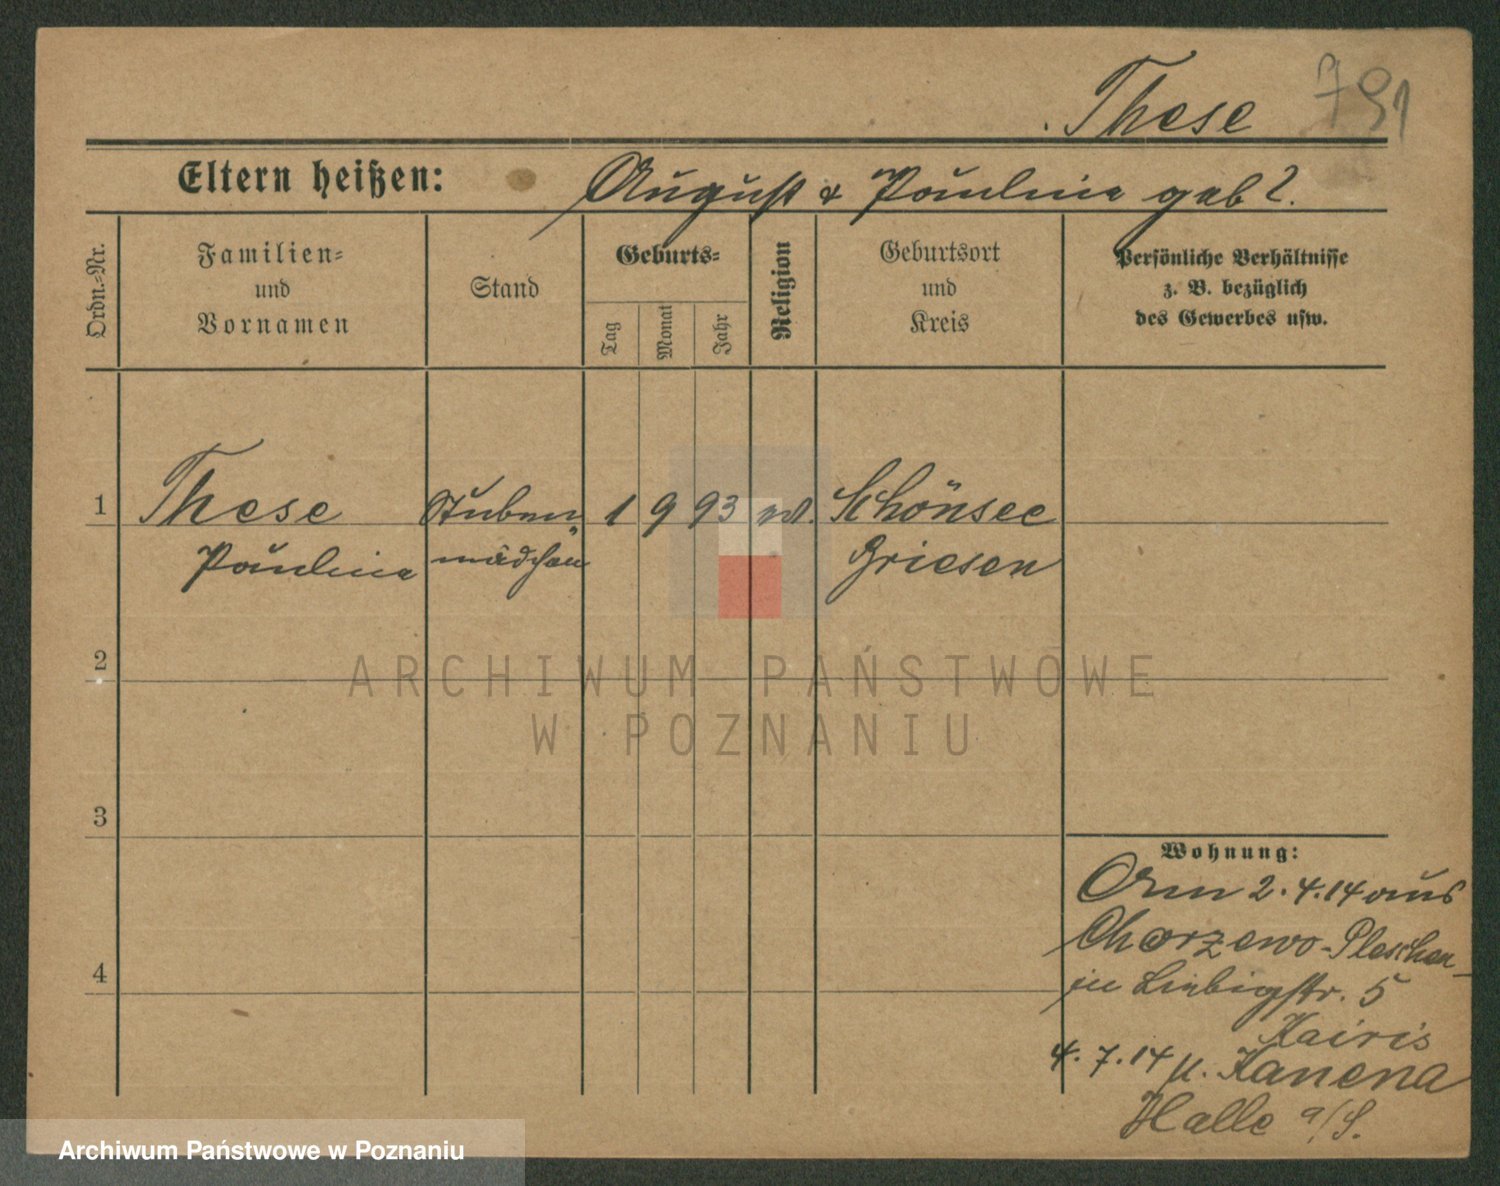 These 791
Eltern heißen: August & Paulina geb?.
Ordn.-Nr.
Familien- und Vornamen
Stand
Geburts-
Tag
Monat
Jahr
Religion
Geburtsort und Kreis
Persönliche Verhältnisse z. B. bezüglich des Gewerbes usw.
1 These Stuben 1 9 93 ev. Schönsee
Paulina mädchen Briesen
2
ARCHIWUM PAŃSTWOWE
W POZNANIU
3
Wohnung:
Am 2.4.14 aus
Chorzewo-Pleschen
in Liebigstr. 5
Kairis
4.7.14 n. Kanena
Halle a/S.
4
Archiwum Państwowe w Poznaniu